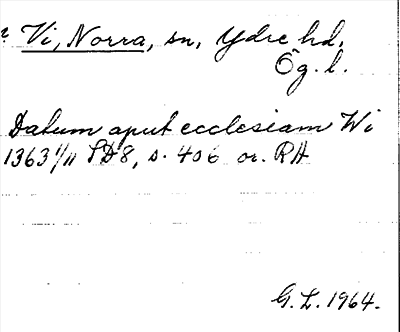 Vi, Norra, sn, Ydre hd,
Ög. l.
Datum aput ecclesiam Wi
1363 1/11 SD8, s. 406 or. RA
G. L. 1964.